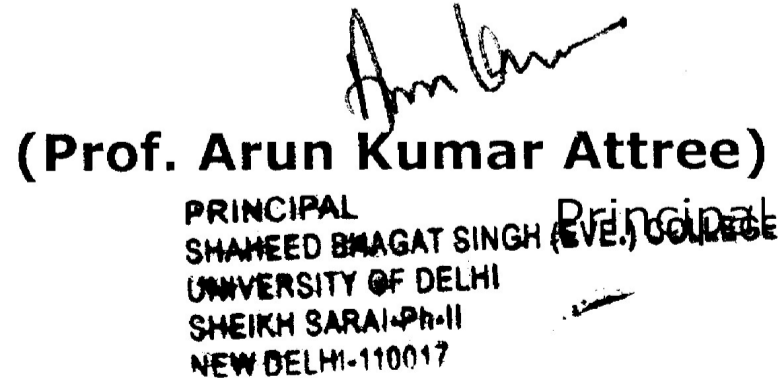 Arun Kumar
(Prof. Arun Kumar Attree)
Principal
PRINCIPAL
SHAHEED BHAGAT SINGH (EVE.) COLLEGE
UNIVERSITY OF DELHI
SHEIKH SARAI-Ph-II
NEW DELHI-110017